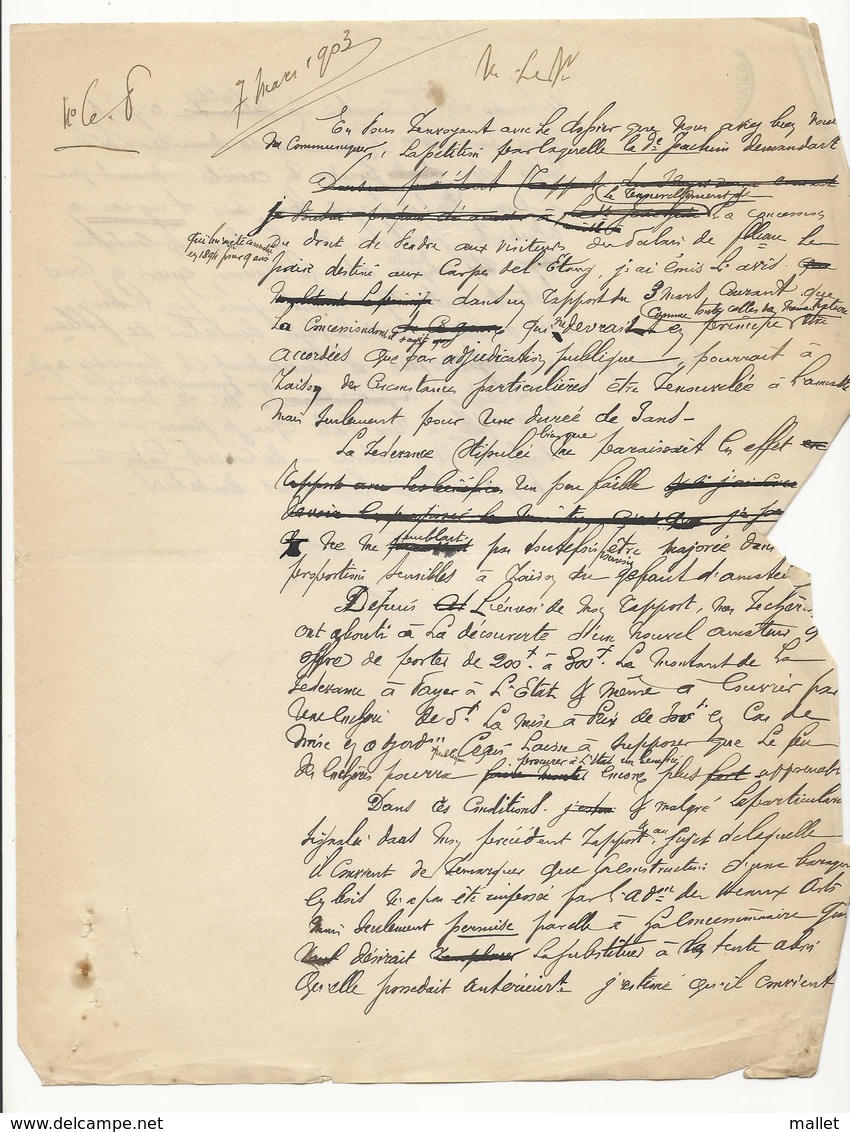 No 6. 8
7 Mars 1903
M. le Dr
En vous renvoyant avec le dossier que vous avez bien voulu
me communiquer, la pétition par laquelle la de Joachim demandait
le renouvellement de
la concession
qui lui avait été accordée
en 1894 pour 9 ans
du droit de vendre aux visiteurs du Palais de fbleau le
pain destiné aux Carpes de l'Etang, j'ai émis l'avis
dans un rapport du 3 Mars courant que
comme toutes celles de
la concession dont il s'agit qui ne devrait en principe être
accordées que par adjudication publique, pourrait à
raison des circonstances particulières être renouvelée à l'amiable
mais seulement pour une durée de 3 ans -
La redevance stipulée bien que me paraissant en effet
rapport avec les bénéfices un peu faible
ne me semblant pas toutefois pouvoir être majorée dans
proportions sensibles à raison du défaut d'amateur
Depuis l'envoi de mon rapport, mes recher
ont abouti à la découverte d'un nouvel amateur q
offre de porter de 200f à 300f le montant de la
redevance à payer à l'Etat & même à couvrir par
une enchère de 5f la mise à prix de 300f en cas de
mise en adjon Ceci laisse à supposer que le feu
des enchères pourra procurer à l'état un bénéfice encore plus appréciable
Dans ces conditions & malgré la particularité
signalée dans mon précédent rapport & au sujet de laquelle
il convient de remarquer que la construction d'une baraque
en bois n'a pas été imposée par l'adon des Beaux Arts
mais seulement permise par elle à la concessionnaire qui
désirait la substituer à la tente abri
qu'elle possédait antérieurt j'estime qu'il convient
mallet